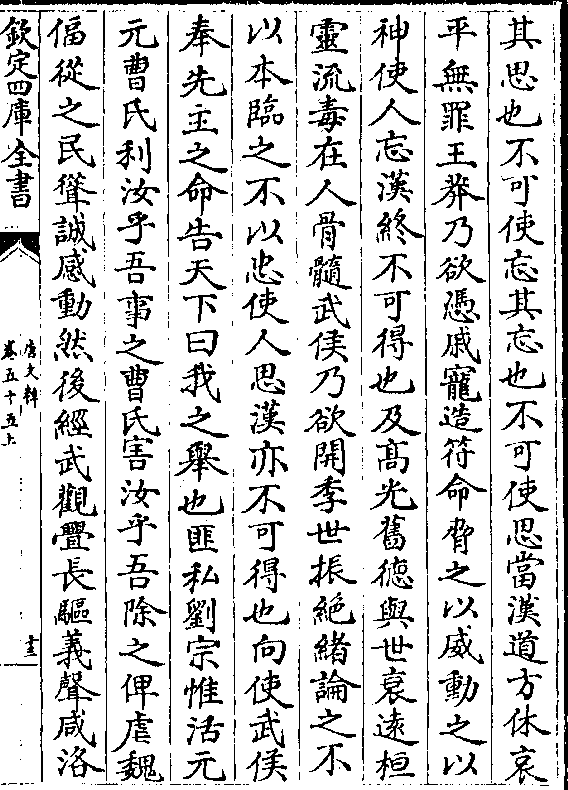 其思也不可使忘其忘也不可使思當漢道方休哀
平無罪王莽乃欲憑戚寵造符命脅之以威動之以
神使人忘漢終不可得也及髙光舊德與世衰逺桓
靈流毒在人骨髓武侯乃欲開季世振絶緒論之不
以本臨之不以忠使人思漢亦不可得也向使武侯
奉先主之命告天下曰我之舉也匪私劉宗惟活元
元曹氏利汝乎吾事之曹氏害汝乎吾除之俾虐魏
偪從之民聳誠感動然後經武觀釁長驅義聲咸洛
欽定四庫全書
唐文粹
卷五十五上
十三